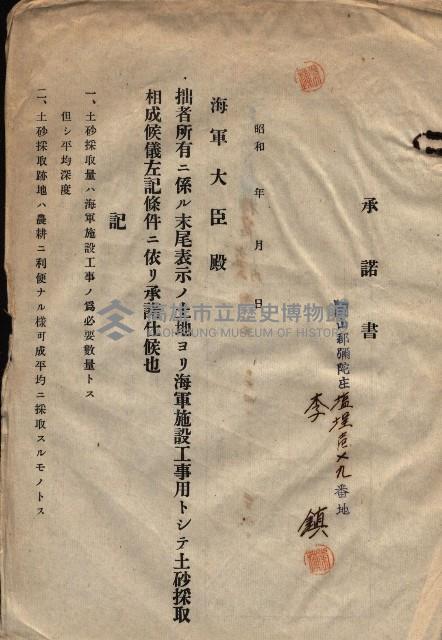 承諾書
山郡彌陀庄
塩埕
九番地
李 鎮
昭和 年 月 日
海軍大臣殿
拙者所有ニ係ル末尾表示ノ土地ヨリ海軍施設工事用トシテ土砂採取
相成候儀左記條件ニ依リ承諾仕候也
記
一、土砂採取量ハ海軍施設工事ノ爲必要數量トス
但シ平均深度
二、土砂採取跡地ハ農耕ニ利便ナル樣可成平均ニ採取スルモノトス
高雄市立歷史博物館
KAOHSIUNG MUSEUM OF HISTORY